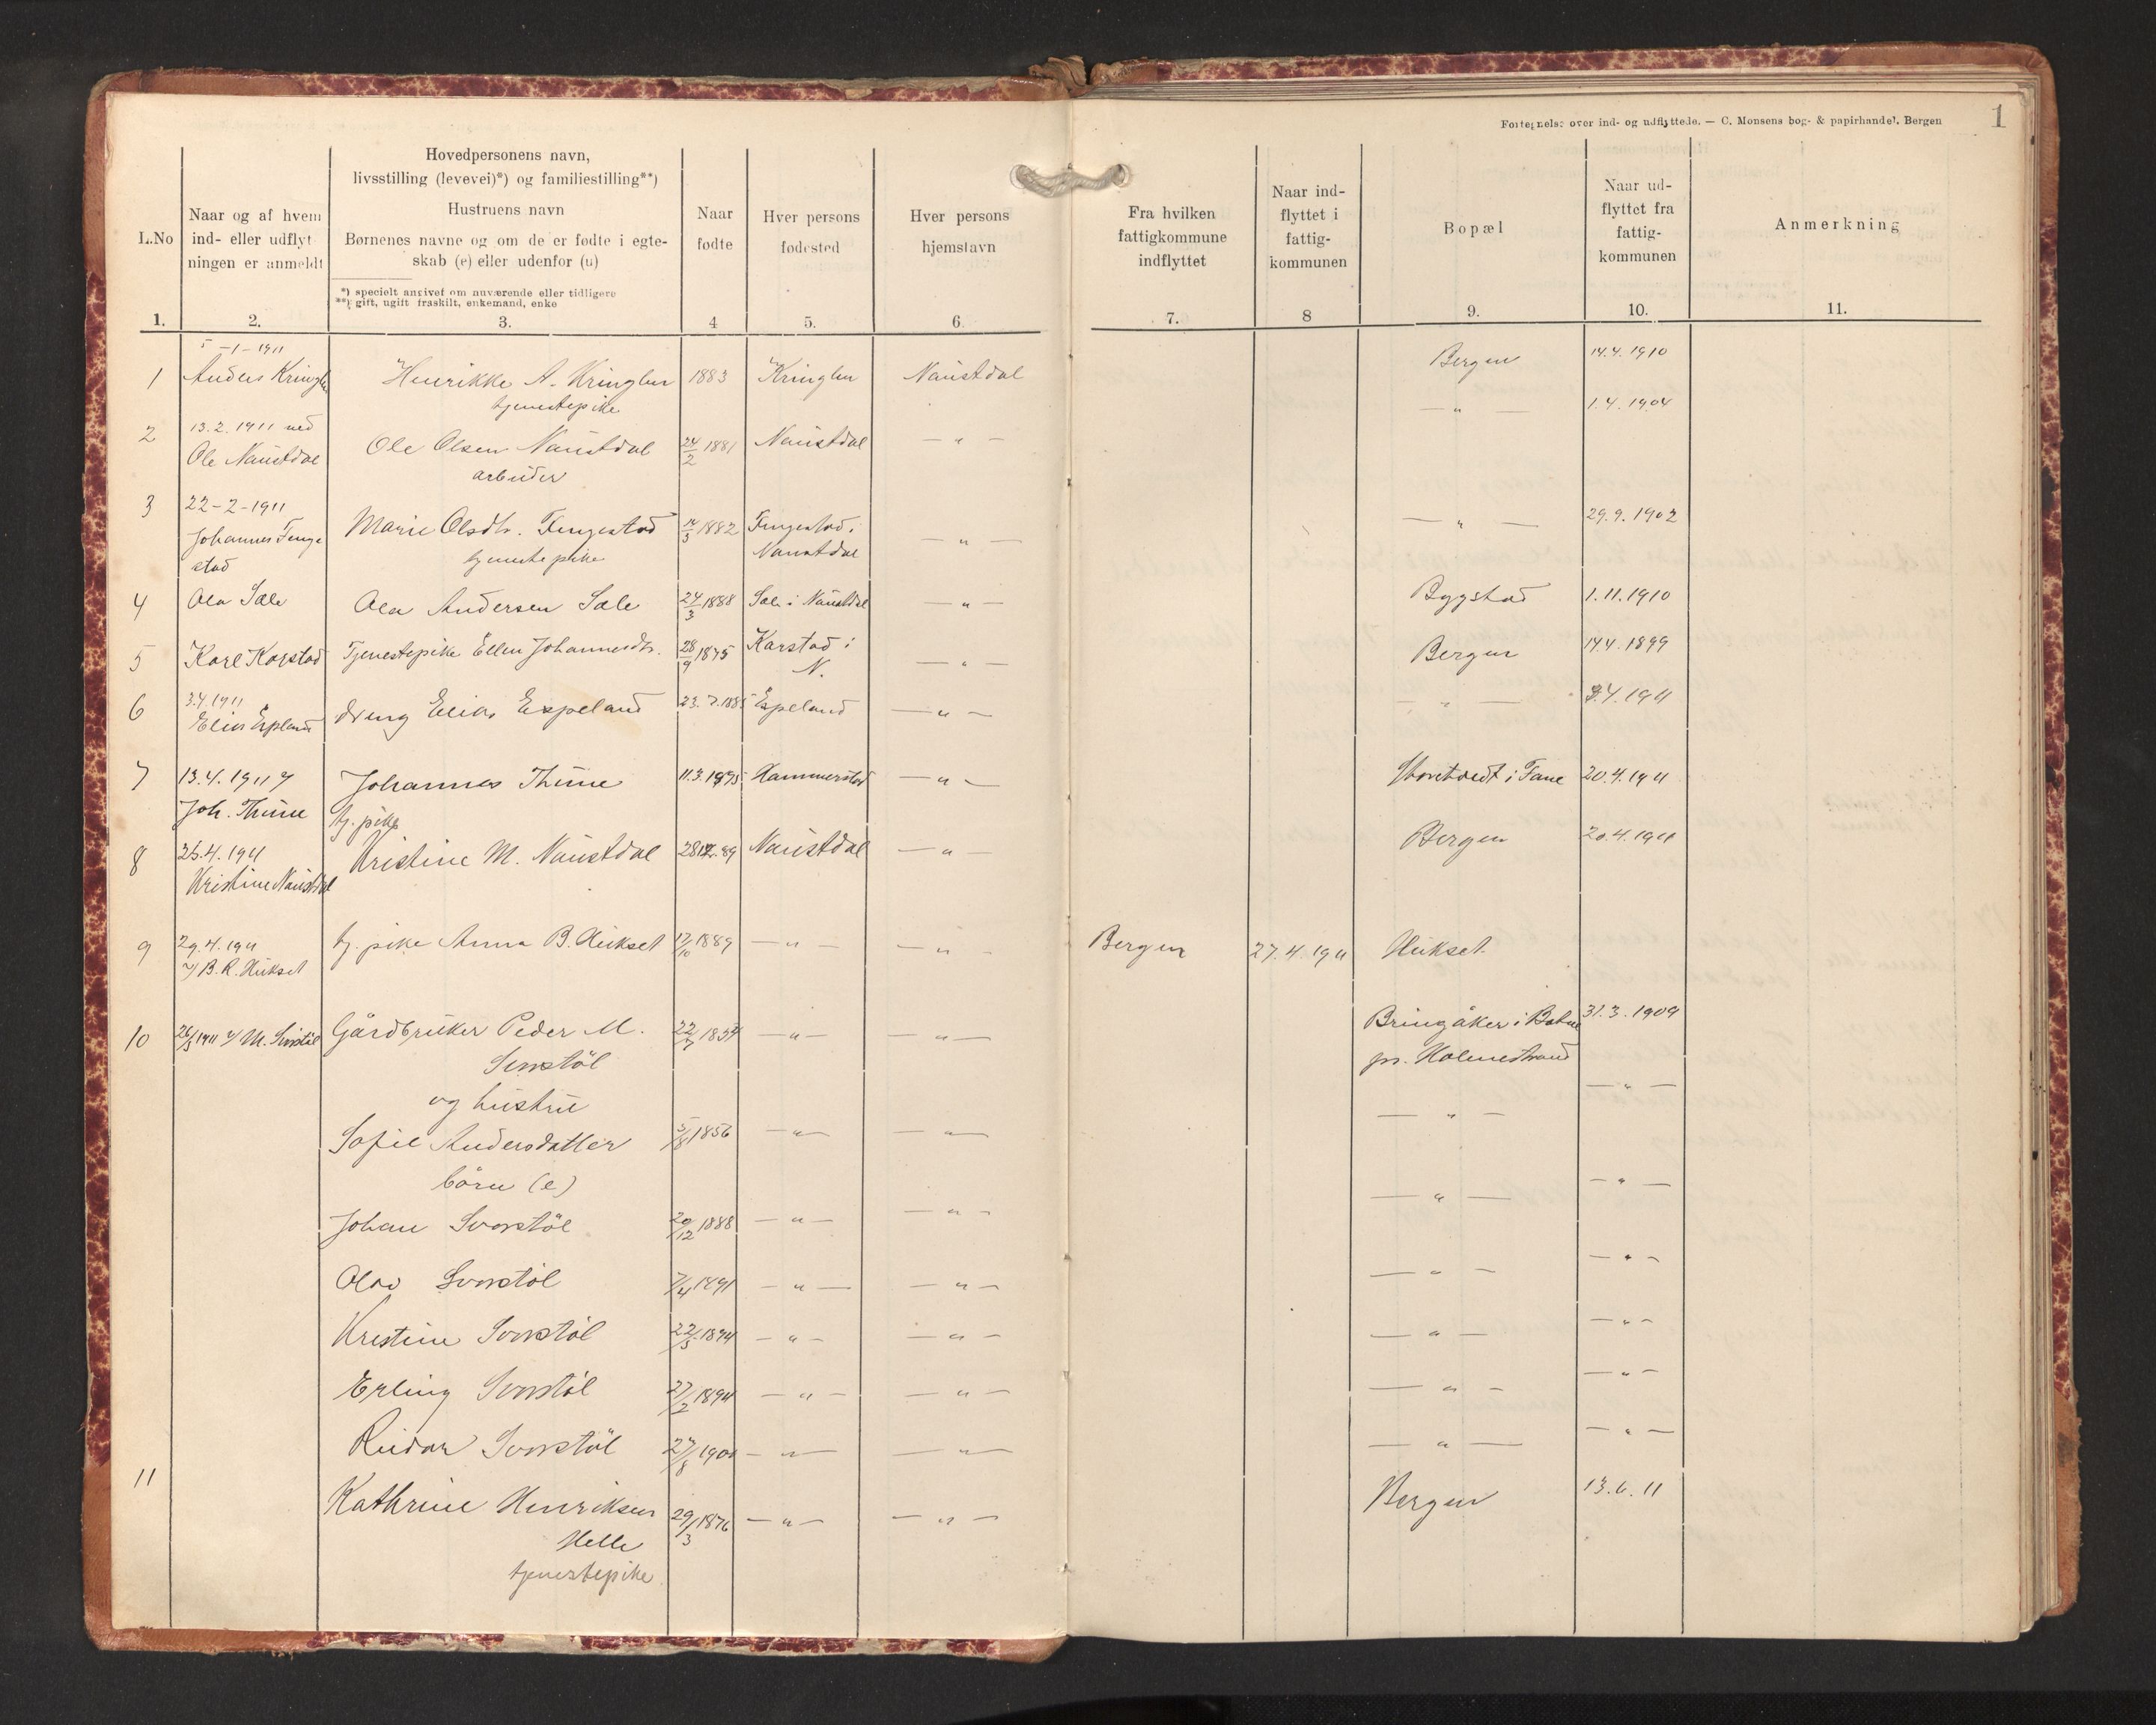 Fortegnelse over ind- og udflyttede. — C. Monsens bog- & papirhandel. Bergen
1
L.No
Naar og af hvem
ind- eller udflyt
ningen er anmeldt
Hovedpersonens navn,
livsstilling (levevei)*) og familiestilling**)
Hustruens navn
Børnenes navne og om de er fødte i egte-
skab (e) eller udenfor (u)
*) specielt angivet om nuværende eller tidligere
**) gift, ugift fraskilt, enkemand, enke
Naar
fødte
Hver persons
fødested
Hver persons
hjemstavn
Fra hvilken
fattigkommune
indflyttet
Naar ind-
flyttet i
fattig-
kommunen
Bopæl
Naar ud-
flyttet fra
fattig-
kommunen
Anmerkning
1. 2. 3. 4 5. 6. 7. 8 9. 10. 11.
5-1-1911
1 Anders Kringlen Henrikke A. Kringlen 1883 Kringlen Naustdal Bergen 14.4.1910
tjenestepike
2 13.2.1911 ved
Ole Naustdal Ole Olsen Naustdal 24/2 1881 Naustdal — " — — " — 1.4.1904
arbeider
3 22-2-1911
Johannes Fenge
stad Marie Olsdtr. Fengestad 14/3 1882 Fengestad i
Naustdal — " — — " — 29.9.1902
tjenestepike
4 Ola Sæle Ola Andersen Sæle 24/3 1888 Sæle i Naustdal — " — Bygstad 1.11.1910
5 Karl Karstad Tjenestepike Ellen Johannesdtr. 28/9 1875 Karstad i
N. — " — Bergen 14.4.1899
6 3.4.1911
Elias Espeland dreng Elias Espeland 23.7.1885 Espeland — " — — " — 3.4.1911
7 13.4.1911 v
Joh. Thune Johannes Thune 11.3.1875 Hammerstad — " — i Fane 20.4.1911
tj. pike
8 25.4.1911
Kristine Naustdal Kristine M. Naustdal 89 Naustdal — " — Bergen 20.4.1911
9 29.4.1911
v/ B. R. Hukset tj. pike Anna B. Hukset 17/10 1889 — " — — " — Bergen 27.4.1911 Hukset
10 26/5 1911 v/ M. Gårdbruker Peder M. 22/7 — " — — " — Bringåker i Botne 31.3.1909
pr. Holmestrand
og hustru
Sofie Andersdatter 5/8 1856 — " — — " — — " — — " —
børn (e)
Johan Svorstøl 20/12 1888 — " — — " — — " — — " —
Olav Svorstøl 7/4 1891 — " — — " — — " — — " —
Kristine Svorstøl 22/5 1894 — " — — " — — " — — " —
Erling Svorstøl 27/2 — " — — " — — " — — " —
Reidar Svorstøl 27/8 — " — — " — — " — — " —
11 Kathrine Henriksen 29/3 1876 — " — — " — Bergen 13.6.11
Helle
tjenestepike